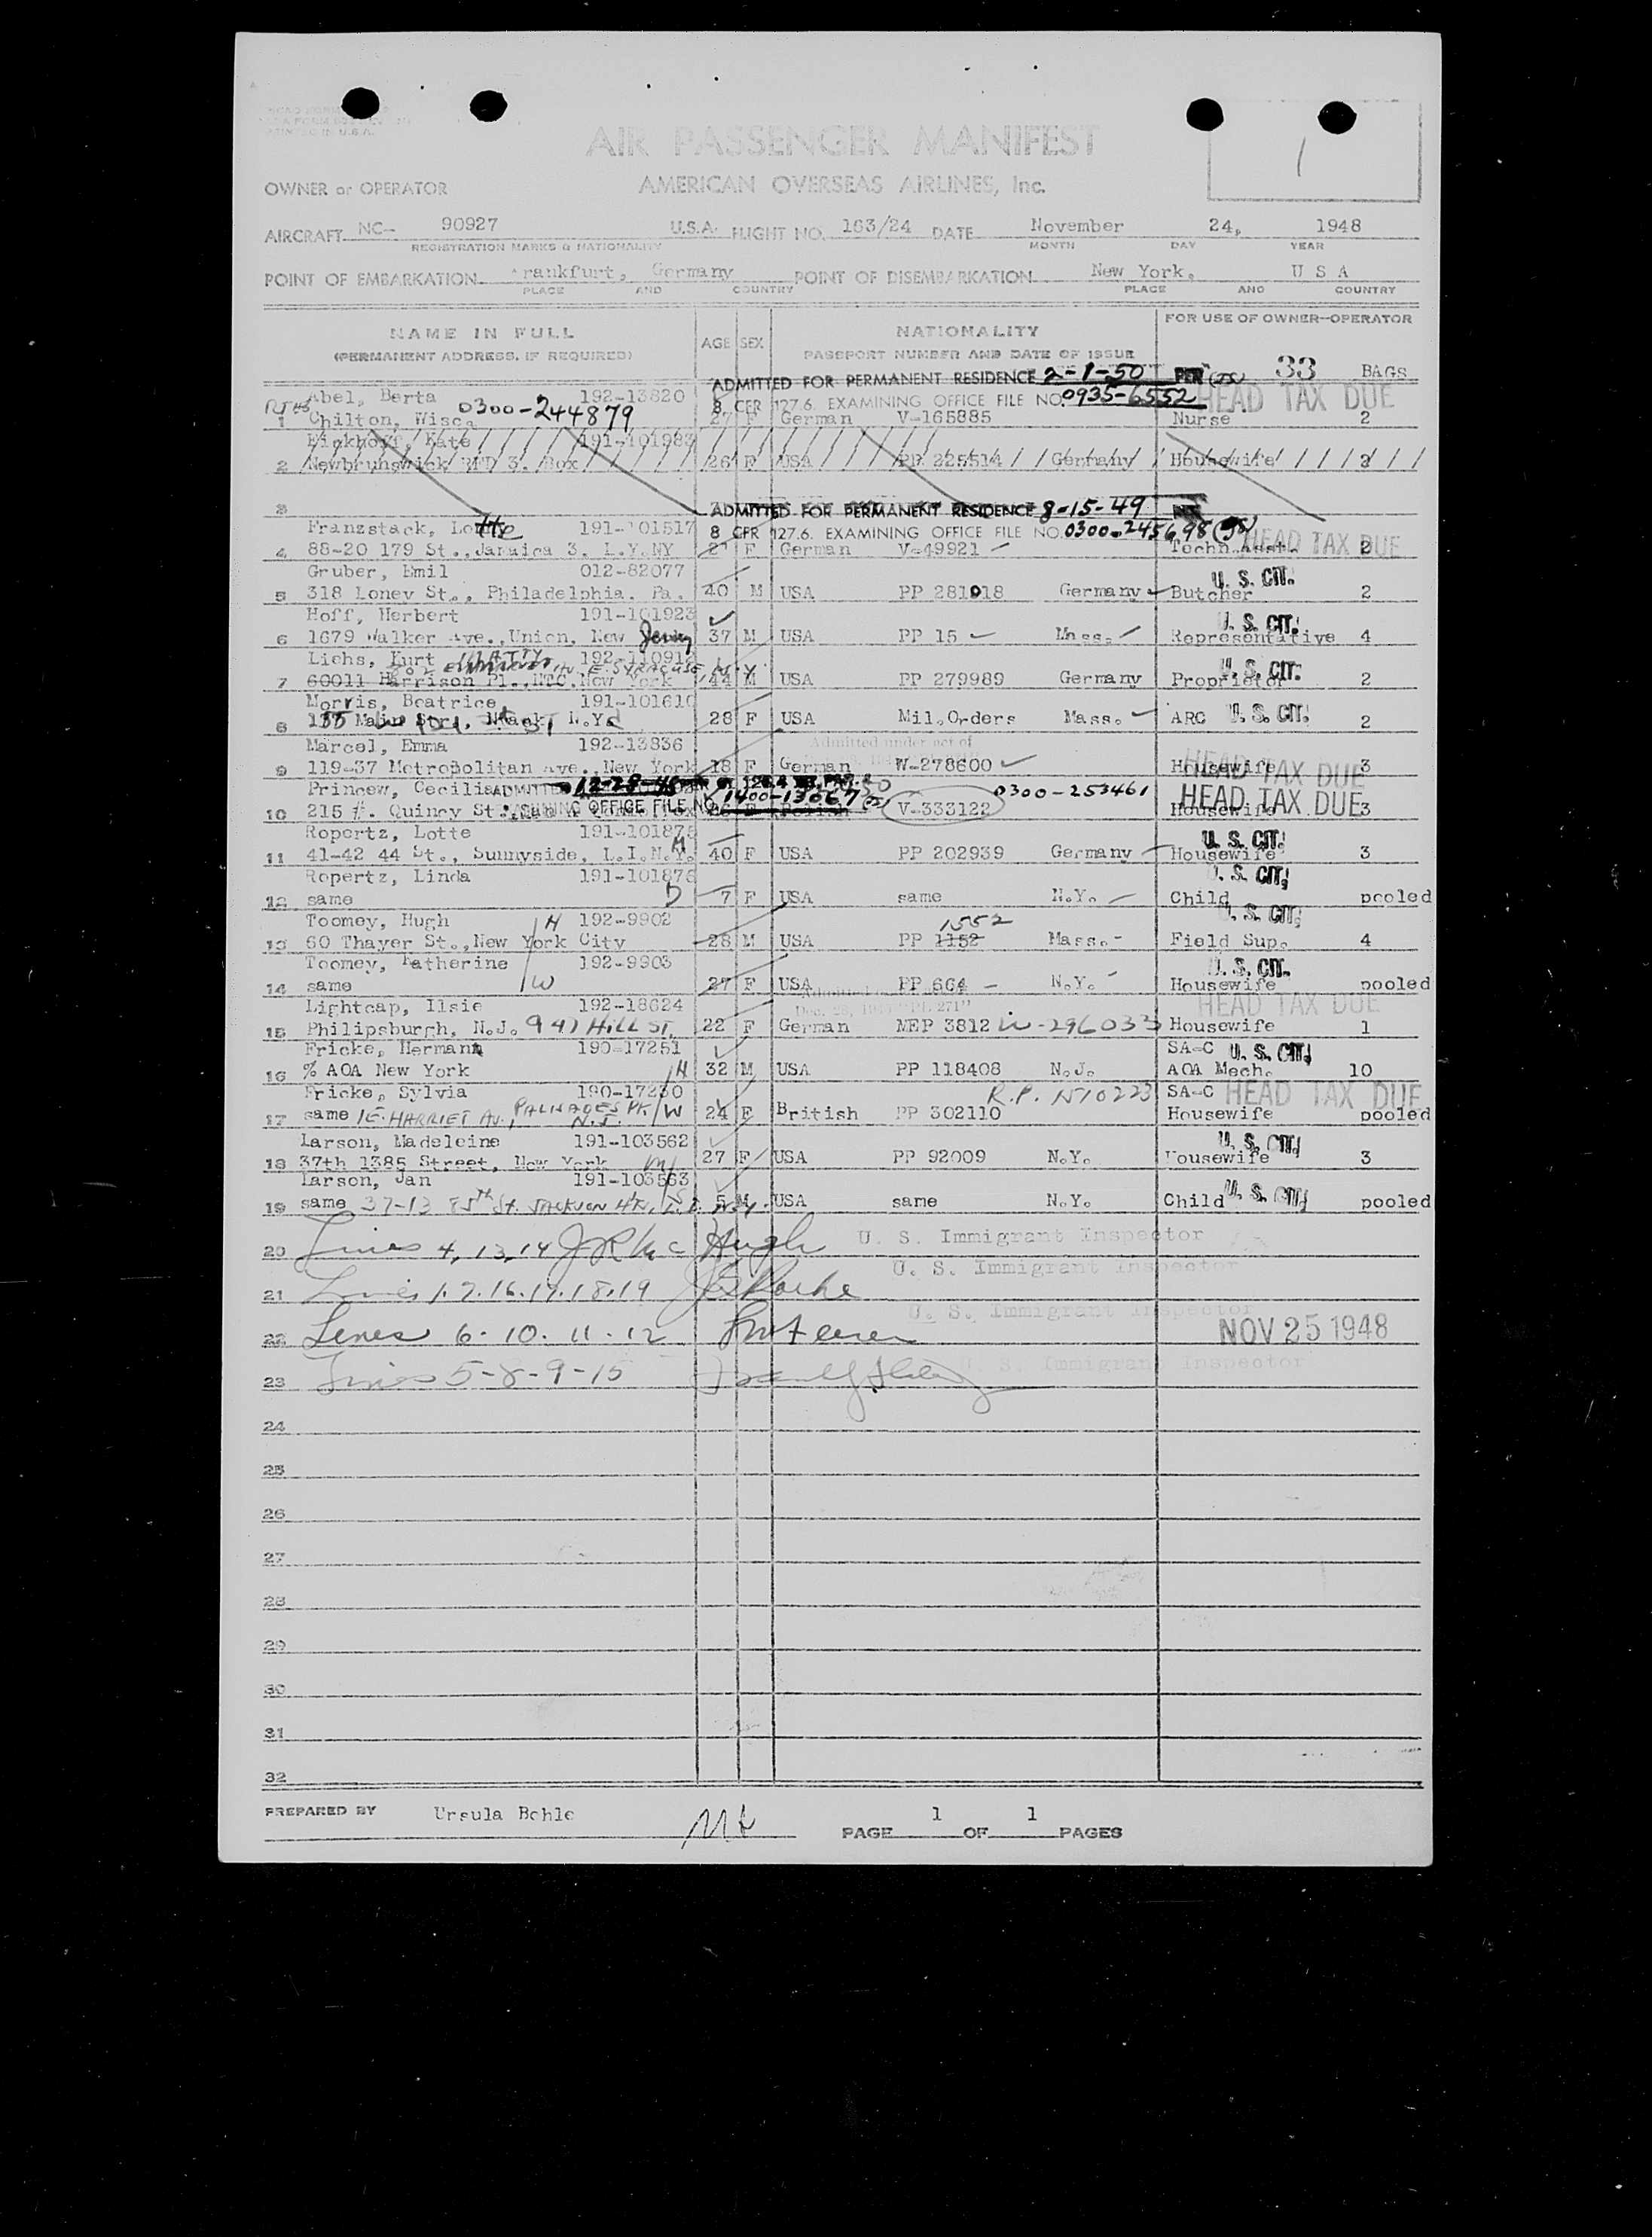 PRINTED IN U.S.A.
AIR PASSENGER MANIFEST
1
OWNER or OPERATOR AMERICAN OVERSEAS AIRLINES, Inc.
AIRCRAFT NC- 90927 U.S.A. FLIGHT NO. 163/24 DATE November 24, 1948
REGISTRATION MARKS & NATIONALITY MONTH DAY YEAR
POINT OF EMBARKATION Frankfurt, Germany POINT OF DISEMBARKATION New York, U S A
PLACE AND COUNTRY PLACE AND COUNTRY
NAME IN FULL AGE SEX NATIONALITY FOR USE OF OWNER-OPERATOR
(PERMANENT ADDRESS, IF REQUIRED) PASSPORT NUMBER AND DATE OF ISSUE
ADMITTED FOR PERMANENT RESIDENCE 2-1-50 PER 33 BAGS
Abel, Berta 192-13820 8 CFR 127.6. EXAMINING OFFICE FILE NO. 0935-6552 HEAD TAX DUE
1 Chilton, Wisc. 0300-244879 27 F German V-165885 Nurse 2
Kate 191-101983
2 Newbrunswick RFD 3. Box 26 F USA PP 225514 Germany Housewife 3
3 ADMITTED FOR PERMANENT RESIDENCE 8-15-49
Franzstack, Lotte 191-101517 8 CFR 127.6. EXAMINING OFFICE FILE NO. 0300-245698 HEAD TAX DUE
4 88-20 179 St., Jamaica 3. L.Y.NY 21 F German V-49921 Techn.Asst. 2
Gruber, Emil 012-82077 U.S. CIT.
5 318 Loney St., Philadelphia. Pa. 40 M USA PP 281018 Germany Butcher 2
Hoff, Herbert 191-101923 U.S. CIT.
6 1679 Walker Ave., Union, New Jersey 37 M USA PP 15 Mass. Representative 4
Lichs, Kurt 192-110918 E. SYRACUSE, N.Y. U.S. CIT.
7 60011 Harrison Pl., NYC, New York 44 M USA PP 279989 Germany Proprietor 2
Morris, Beatrice 191-101610
8 Nyack, N.Y. 28 F USA Mil.Orders Mass. ARC U.S. CIT. 2
Marcel, Emma 192-13836 Admitted under act of HEAD TAX DUE
9 119-37 Metropolitan Ave., New York 18 F German W-278600 Housewife 3
Princew, Cecilia ADMITTED 12-28-48 0300-253461 HEAD TAX DUE
10 215 E. Quincy St. EXAMINING OFFICE FILE NO. 1400-13067 V-333122 Housewife 3
Ropertz, Lotte 191-101875 U.S. CIT.
11 41-42 44 St., Sunnyside, L.I.N.Y. M 40 F USA PP 202939 Germany Housewife 3
Ropertz, Linda 191-101876 U.S. CIT.
12 same D 7 F USA same N.Y. Child pooled
Toomey, Hugh H 192-9902 1552 U.S. CIT.
13 60 Thayer St., New York City 28 M USA PP 1152 Mass. Field Sup. 4
Toomey, Katherine 192-9903 U.S. CIT.
14 same W 27 F USA PP 664 N.Y. Housewife pooled
Lightcap, Ilsie 192-18624 HEAD TAX DUE
15 Philipsburgh, N.J. 947 HILL ST. 22 F German MEP 3812 W-296033 Housewife 1
Fricke, Hermann 190-17251 SA-C U.S. CIT.
16 % AOA New York H 32 M USA PP 118408 N.J. AOA Mech. 10
Fricke, Sylvia 190-17250 R.P. N710223 SA-C HEAD TAX DUE
17 same 1 E. HARRIET AV., PALISADES PK N.J. W 24 F British PP 302110 Housewife pooled
Larson, Madeleine 191-103562 U.S. CIT.
18 37th 1385 Street, New York M 27 F USA PP 92009 N.Y. Housewife 3
Larson, Jan 191-103563
19 same 37-13 85th St. JACKSON HTS, L.I. N.Y. 5 M USA same N.Y. Child U.S. CIT. pooled
20 Lines 4, 13, 14 J R McHugh U. S. Immigrant Inspector
U. S. Immigrant Inspector
21 Lines 1.7.16.17.18.19
U. S. Immigrant Inspector
22 Lines 6-10-11-12 NOV 25 1948
U. S. Immigrant Inspector
23 Lines 5-8-9-15
24
25
26
27
28
29
30
31
32
PREPARED BY Ursula Bohle PAGE 1 OF 1 PAGES